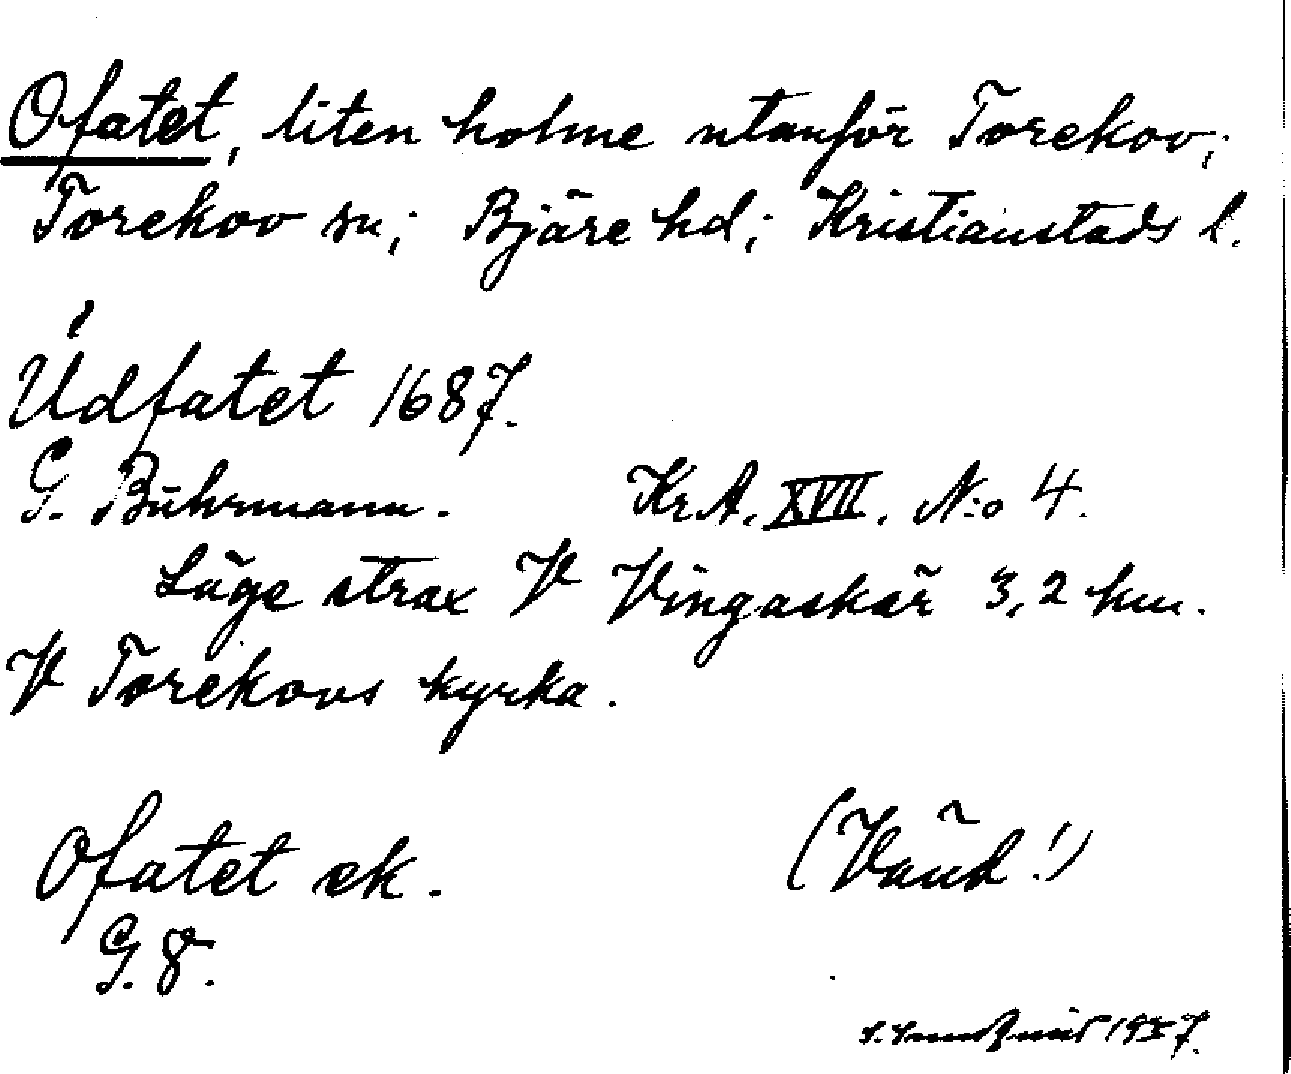 Ofatet, liten holme utanför Torekov;
Torekov sn; Bjäre hd; Kristianstads l.
Údfatet 1687.
G. Buhrmann. Kr.A. XVII. N:o 4.
Läge strax V Vingaskär 3,2 km.
V Torekovs kyrka.
Ofatet ek.
(Vänd!)
G. 8.
1957.